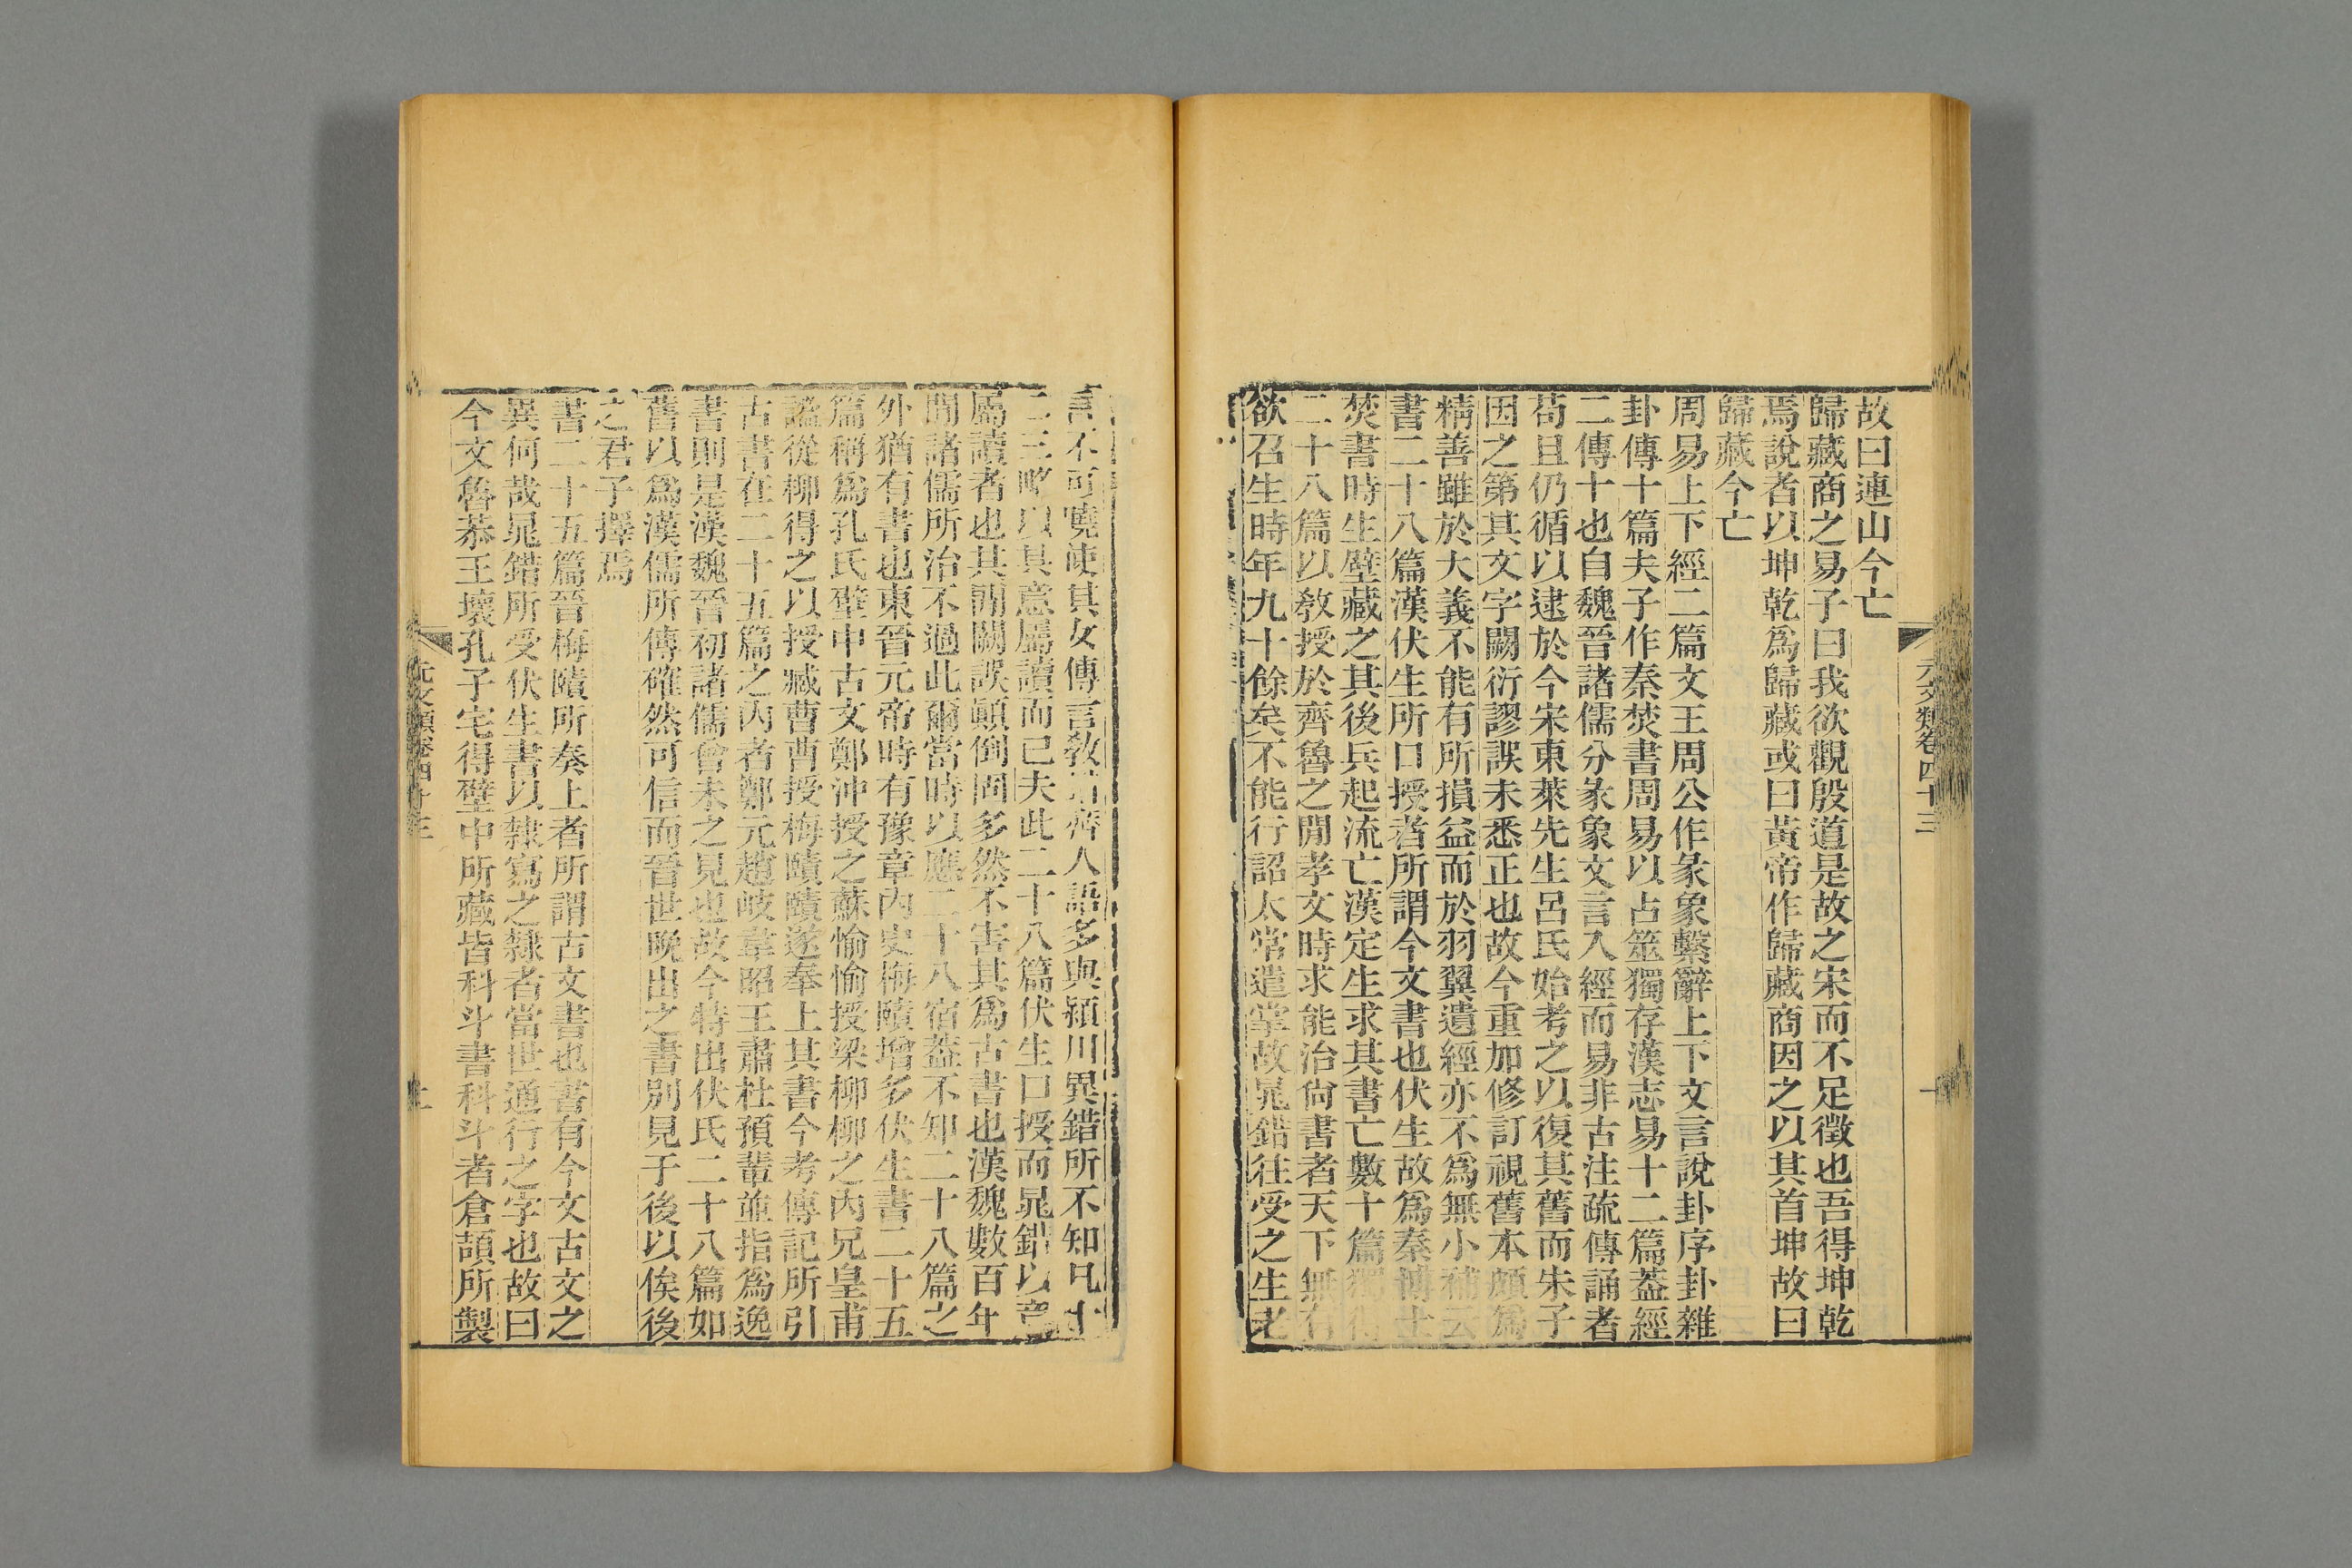 故曰連山今亡
歸藏商之易子曰我欲觀殷道是故之宋而不足徵也吾得坤乾
焉說者以坤乾爲歸藏或曰黃帝作歸藏商因之以其首坤故曰
歸藏今亡
周易上下經二篇文王周公作彖象繫辭上下文言說卦序卦雜
卦傳十篇夫子作秦焚書周易以占筮獨存漢志易十二篇葢經
二傳十也自魏晉諸儒分彖象文言入經而易非古注疏傳誦者
苟且仍循以逮於今宋東萊先生呂氏始考之以復其舊而朱子
因之第其文字闕衍謬誤未悉正也故今重加修訂視舊本頗爲
精善雖於大義不能有所損益而於羽翼遺經亦不爲無小補云
書二十八篇漢伏生所口授者所謂今文書也伏生故爲秦博士
焚書時生壁藏之其後兵起流亡漢定生求其書亡數十篇獨得
二十八篇以敎授於齊魯之閒孝文時求能治尙書者天下無有
欲召生時年九十餘矣不能行詔太常遣掌故晁錯往受之生老
言不可曉使其女傳言敎錯齊人語多與潁川異錯所不知凡十
二三略以其意屬讀而已夫此二十八篇伏生口授而晁錯以意
屬讀者也其閒闕誤顚倒固多然不害其爲古書也漢魏數百年
閒諸儒所治不過此爾當時以應二十八宿葢不知二十八篇之
外猶有書也東晉元帝時有豫章內史梅賾增多伏生書二十五
篇稱爲孔氏壁中古文鄭沖授之蘇愉愉授梁柳柳之內兄皇甫
謐從柳得之以授臧曹曹授梅賾賾遂奉上其書今考傳記所引
古書在二十五篇之內者鄭元趙岐韋昭王肅杜預輩並指爲逸
書則是漢魏晉初諸儒曾未之見也故今特出伏氏二十八篇如
舊以爲漢儒所傳確然可信而晉世晩出之書別見于後以俟後
之君子擇焉
書二十五篇晉梅賾所奏上者所謂古文書也書有今文古文之
異何哉晁錯所受伏生書以隸寫之隸者當世通行之字也故曰
今文魯恭王壞孔子宅得壁中所藏皆科斗書科斗者倉頡所製
元文類卷四十三